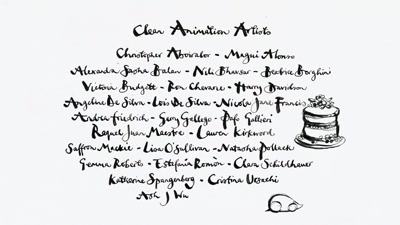 Clean Animation Artists
Christopher Abowater - Magui Alonso
Alexandra Sasha Balan - Nili Bhavsar - Beatrice Borghini
Victoria Budgett - Ron Chevarie - Harry Davidson
Angeline De Silva - Lois De Silva - Nicola Jane Francis
Andrea Friedrich - Gemy Gallego - Pafo Gallieri
Raquel Juan Maestre - Lauren Kirkwood
Saffron Mackie - Lisa O'Sullivan - Natasha Pollack
Gemma Roberts - Estefania Romòn - Clara Schildhauer
Katherine Spangenberg - Cristina Ursachi
Ash J Wu